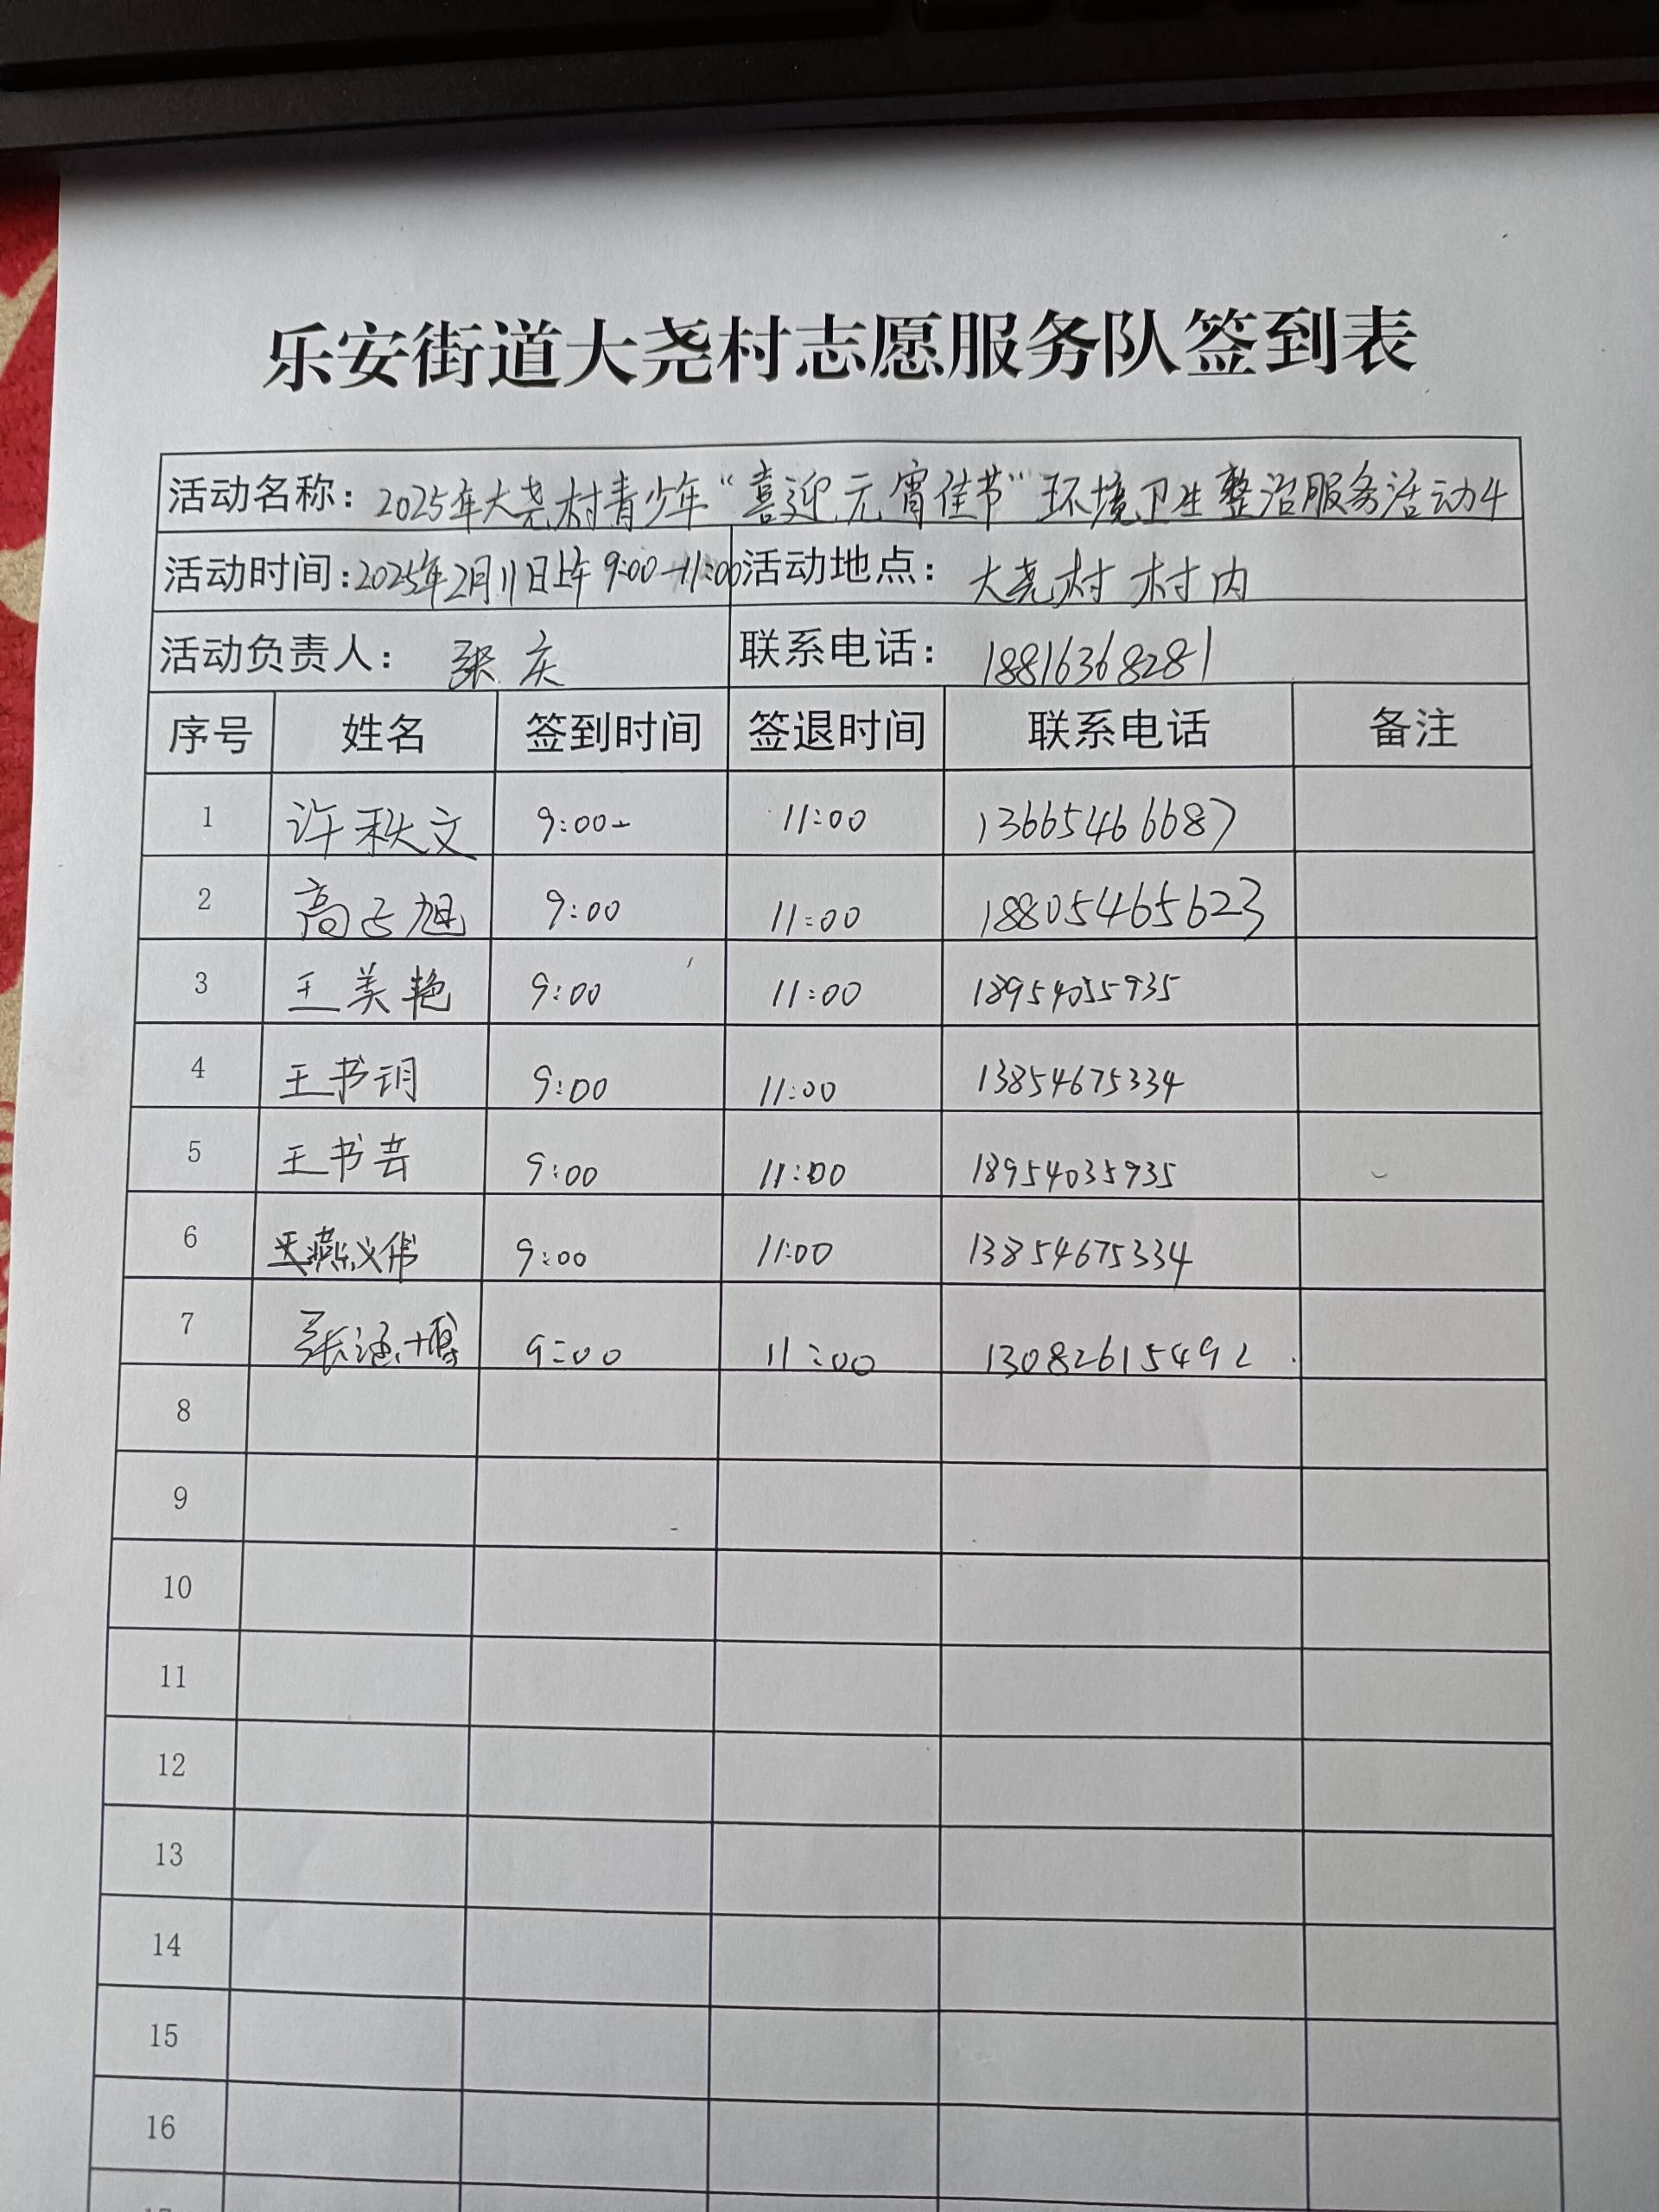 乐安街道大尧村志愿服务队签到表
活动名称：2025年大尧村青少年“喜迎元宵佳节”环境卫生整治服务活动4
活动时间：2025年2月11日上午9:00-11:00 活动地点：大尧村村内
活动负责人：张庆 联系电话：18816368281
序号 姓名 签到时间 签退时间 联系电话 备注
1 许秋文 9:00- 11:00 13665466687
2 高子旭 9:00 11:00 18805465623
3 王美艳 9:00 11:00 18954055935
4 王书玥 9:00 11:00 13854675334
5 王书芸 9:00 11:00 18954035935
6 9:00 11:00 13854675334
7 张涵博 9:00 11:00 13082615492
8
9
10
11
12
13
14
15
16